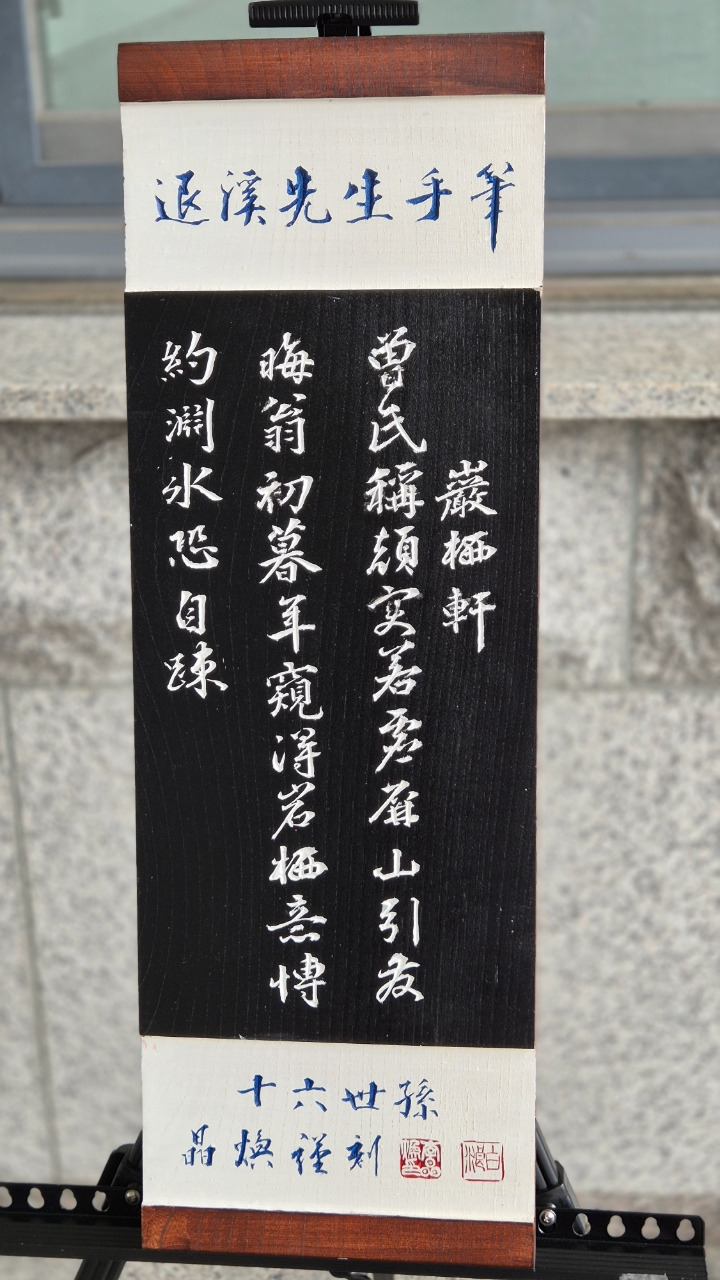 退溪先生手筆
巖栖軒
曾氏稱顔实若虛屛山引发
晦翁初暮年窺得岩栖意博
約淵氷恐自踈
十六世孫
晶煥謹刻